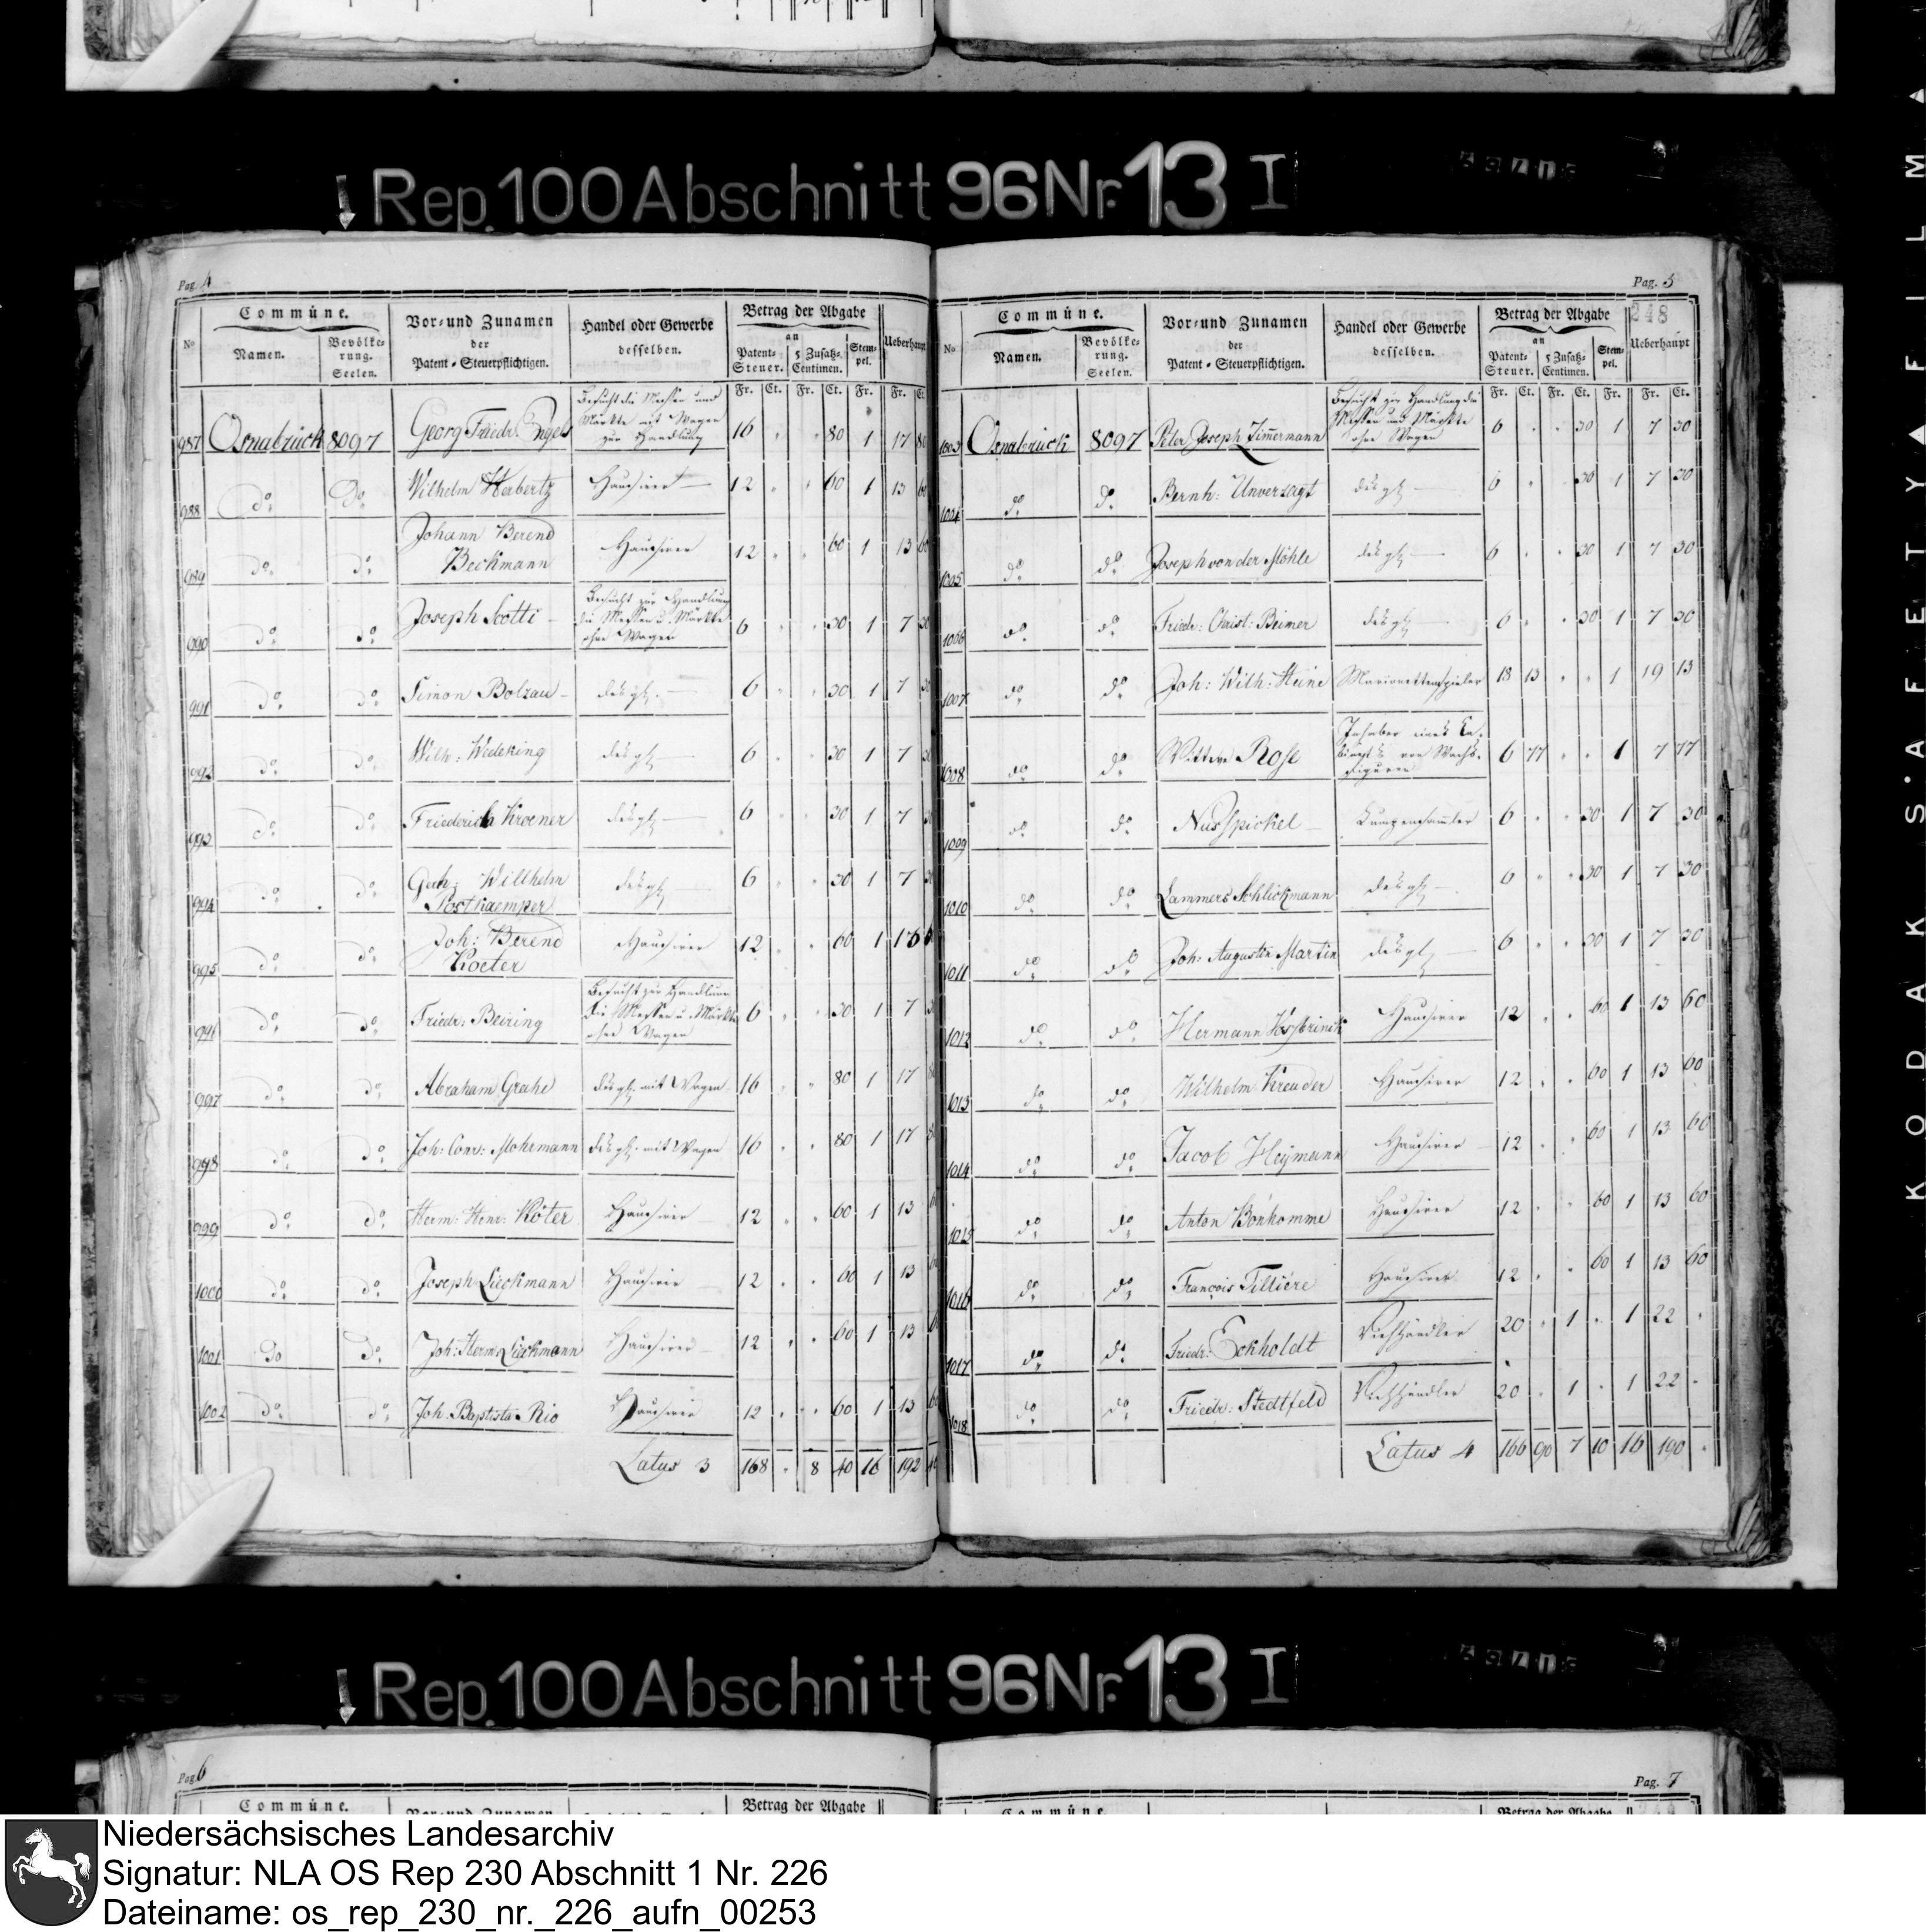 Rep. 100 Abschnitt 96 Nr. 13 I
Pag. 4
No
Commúne.
Namen.
Bevölke-
rung.
Seelen.
Vor- und Zunamen
der
Patent-Steuerpflichtigen.
Handel oder Gewerbe
desselben.
Betrag der Abgabe
an
Patent-
Steuer.
5 Zusatz-
Centimen.
Stem-
pel.
Ueberhaupt
Fr. Ct. Fr. Ct. Fr. Fr. Ct.
987 Osnabrück 8097 Georg Friedr. Engels Besucht die Messen und
Märkte mit Wagen
zur Handlung 16 80 1 17 80
988 do. do. Wilhelm Herbertz Hausirer 12 60 1 13 60
989 do. do. Johann Berend
Beckmann Hausirer 12 60 1 13 60
990 do. do. Joseph Scotti Besucht zur Handlung
die Messen u. Märkte
ohne Wagen 6 30 1 7 30
991 do. do. Simon Bolzau desgl. 6 30 1 7 30
992 do. do. Wilh: Wedeking desgl. 6 30 1 7 30
993 do. do. Friederich Kroener desgl. 6 30 1 7 30
994 do. do. Gerh: Willhelm
Postkaemper desgl. 6 30 1 7
995 do. do. Joh: Berend
Koeter Hausirer 12 60 1 13
996 do. do. Friedr: Beiring Besucht zur Handlung
die Messen u. Märkte
ohne Wagen 6 30 1 7
997 do. do. Abraham Grahe desgl. mit Wagen 16 80 1 17
998 do. do. Joh: Conr: Mohrmann desgl. mit Wagen 16 80 1 17
999 do. do. Herm: Henr: Köter Hausirer 12 60 1 13
1000 do. do. Joseph Lieckmann Hausirer 12 60 1 13
1001 do. do. Joh: Herm: Lieckmann Hausirer 12 60 1 13
1002 do. do. Joh. Baptista Rio Hausirer 12 60 1 13
Latus 3 168 8 40 16 192 40
Pag. 5
248
No
Commúne.
Namen.
Bevölke-
rung.
Seelen.
Vor- und Zunamen
der
Patent-Steuerpflichtigen.
Handel oder Gewerbe
desselben.
Betrag der Abgabe
an
Patent-
Steuer.
5 Zusatz-
Centimen.
Stem-
pel.
Ueberhaupt
Fr. Ct. Fr. Ct. Fr. Fr. Ct.
1003 Osnabrück 8097 Peter Joseph Zimmermann Besucht zur Handlung die
Messen und Märkte
ohne Wagen 6 30 1 7 30
1004 do. do. Bernh: Unversagt desgl. 6 30 1 7 30
1005 do. do. Joseph von der Möhle desgl. 6 30 1 7 30
1006 do. do. Friedr: Christ: Beimer desgl. 6 30 1 7 30
1007 do. do. Joh: Wilh: Heine Marionettenspieler 18 13 1 19 13
1008 do. do. Wittwe Rose Inhaber eines Ca-
binets von Wachs-
figuren 6 77 1 7 77
1009 do. do. Nusspickel Lumpensammler 6 30 1 7 30
1010 do. do. Lammers Schlickmann desgl. 6 30 1 7 30
1011 do. do. Joh: Augustin Martin desgl. 6 30 1 7 30
1012 do. do. Hermann Hausirer 12 60 1 13 60
1013 do. do. Wilhelm Kreuder Hausirer 12 60 1 13 60
1014 do. do. Jacob Heymann Hausirer 12 60 1 13 60
1015 do. do. Anton Bonhomme Hausirer 12 60 1 13 60
1016 do. do. François Tilliére Hausirer 12 60 1 13 60
1017 do. do. Friedr: Eckholdt Viehhändler 20 1 1 22
1018 do. do. Friedr: Stedtfeld Viehhändler 20 1 1 22
Latus 4 166 90 7 10 16 190
Rep. 100 Abschnitt 96 Nr. 13 I
Pag. 6
Commúne.
Betrag der Abgabe
Pag. 7
KODAK SAFETY FILM
Niedersächsisches Landesarchiv
Signatur: NLA OS Rep 230 Abschnitt 1 Nr. 226
Dateiname: os_rep_230_nr._226_aufn_00253